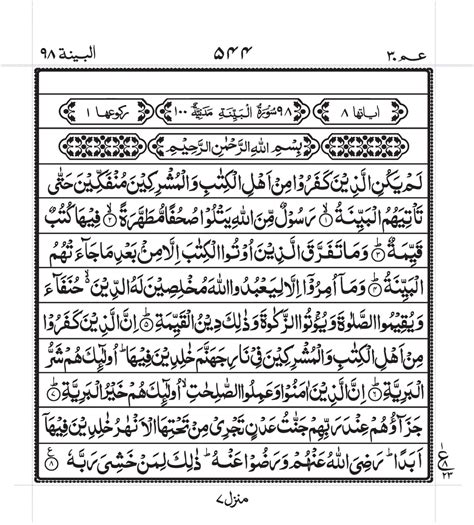 عم ٣٠ ٥٤٤ البينة ٩٨
اٰیاتها ٨ ٩٨ سُوْرَةُ الْبَیِّنَةِ مَدَنِیَّةٌ ١٠٠ رکوعها ١
بِسْمِ اللّٰهِ الرَّحْمٰنِ الرَّحِیْمِ
لَمْ یَكُنِ الَّذِیْنَ كَفَرُوْا مِنْ اَهْلِ الْكِتٰبِ وَ الْمُشْرِكِیْنَ مُنْفَكِّیْنَ حَتّٰى
تَاْتِیَهُمُ الْبَیِّنَةُ ۙ﴿١﴾ رَسُوْلٌ مِّنَ اللّٰهِ یَتْلُوْا صُحُفًا مُّطَهَّرَةً ۙ﴿٢﴾ فِیْهَا كُتُبٌ
قَیِّمَةٌ ؕ﴿٣﴾ وَ مَا تَفَرَّقَ الَّذِیْنَ اُوْتُوا الْكِتٰبَ اِلَّا مِنْۢ بَعْدِ مَا جَآءَتْهُمُ
الْبَیِّنَةُ ؕ﴿٤﴾ وَ مَاۤ اُمِرُوْۤا اِلَّا لِیَعْبُدُوا اللّٰهَ مُخْلِصِیْنَ لَهُ الدِّیْنَ ۙ۬ حُنَفَآءَ
وَ یُقِیْمُوا الصَّلٰوةَ وَ یُؤْتُوا الزَّكٰوةَ وَ ذٰلِكَ دِیْنُ الْقَیِّمَةِ ؕ﴿٥﴾ اِنَّ الَّذِیْنَ كَفَرُوْا
مِنْ اَهْلِ الْكِتٰبِ وَ الْمُشْرِكِیْنَ فِیْ نَارِ جَهَنَّمَ خٰلِدِیْنَ فِیْهَا ؕ اُولٰٓىِٕكَ هُمْ شَرُّ
الْبَرِیَّةِ ؕ﴿٦﴾ اِنَّ الَّذِیْنَ اٰمَنُوْا وَ عَمِلُوا الصّٰلِحٰتِ ۙ اُولٰٓىِٕكَ هُمْ خَیْرُ الْبَرِیَّةِ ؕ﴿٧﴾
جَزَآؤُهُمْ عِنْدَ رَبِّهِمْ جَنّٰتُ عَدْنٍ تَجْرِیْ مِنْ تَحْتِهَا الْاَنْهٰرُ خٰلِدِیْنَ فِیْهَاۤ
اَبَدًا ؕ رَضِیَ اللّٰهُ عَنْهُمْ وَ رَضُوْا عَنْهُ ؕ ذٰلِكَ لِمَنْ خَشِیَ رَبَّهٗ ﴿٨﴾
ع ١ ٨ ٢٣
منزل ٧